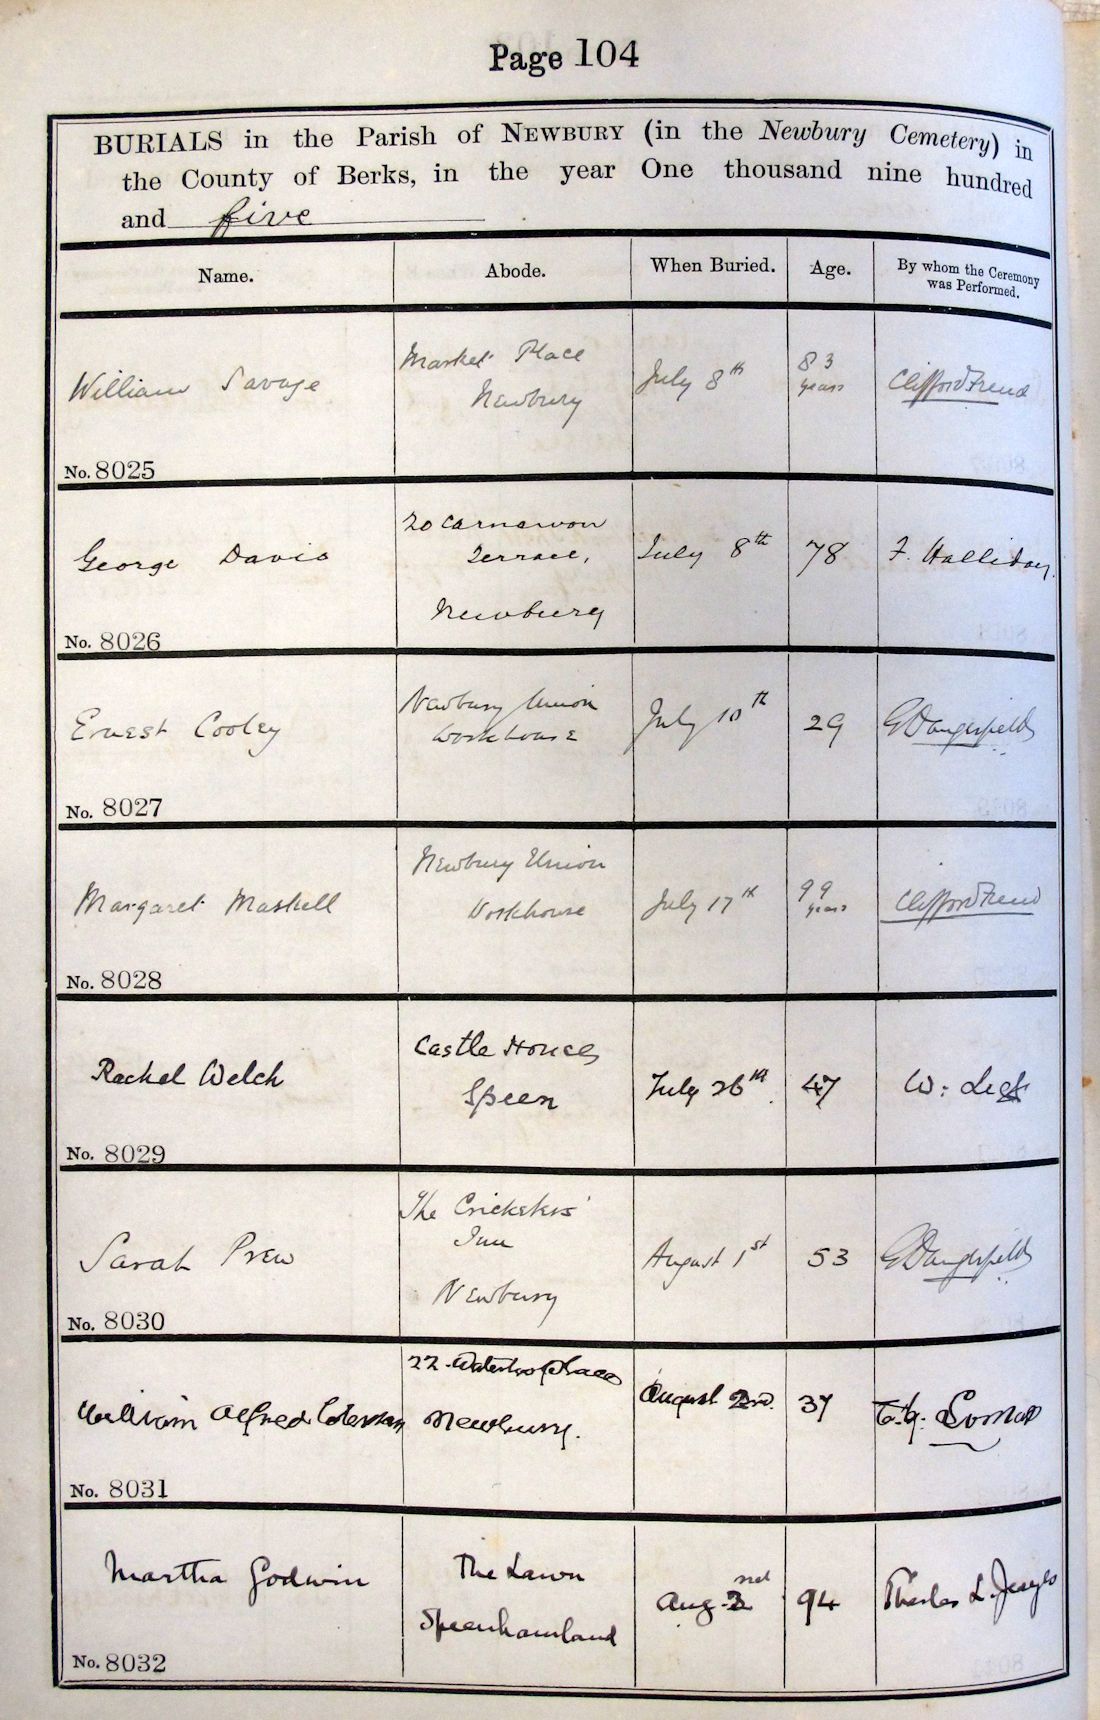 Page 104
BURIALS in the Parish of NEWBURY (in the Newbury Cemetery) in
the County of Berks, in the year One thousand nine hundred
and five
Name.
Abode.
When Buried.
Age.
By whom the Ceremony
was Performed.
William Savage
Market Place
Newbury
July 8th
83
years
Clifford Frend
No. 8025
George Davis
20 Carnarvon
Terrace,
Newbury
July 8th
78
F. Halliday.
No. 8026
Ernest Cooley
Newbury Union
Workhouse
July 10th
29
G Dangerfield
No. 8027
Margaret Maskell
Newbury Union
Workhouse
July 17th
99
years
Clifford Frend
No. 8028
Rachel Welch
Castle House
Speen
July 26th.
47
W:
No. 8029
Sarah Prew
The Cricketers'
Inn
Newbury
August 1st
53
G Dangerfield
No. 8030
William Alfred Coleman
22. Waterloo place
Newbury.
August 2nd.
37
Lomas
No. 8031
Martha Godwin
The Lawn
Speenhamland
Aug. 2nd
94
L.
No. 8032